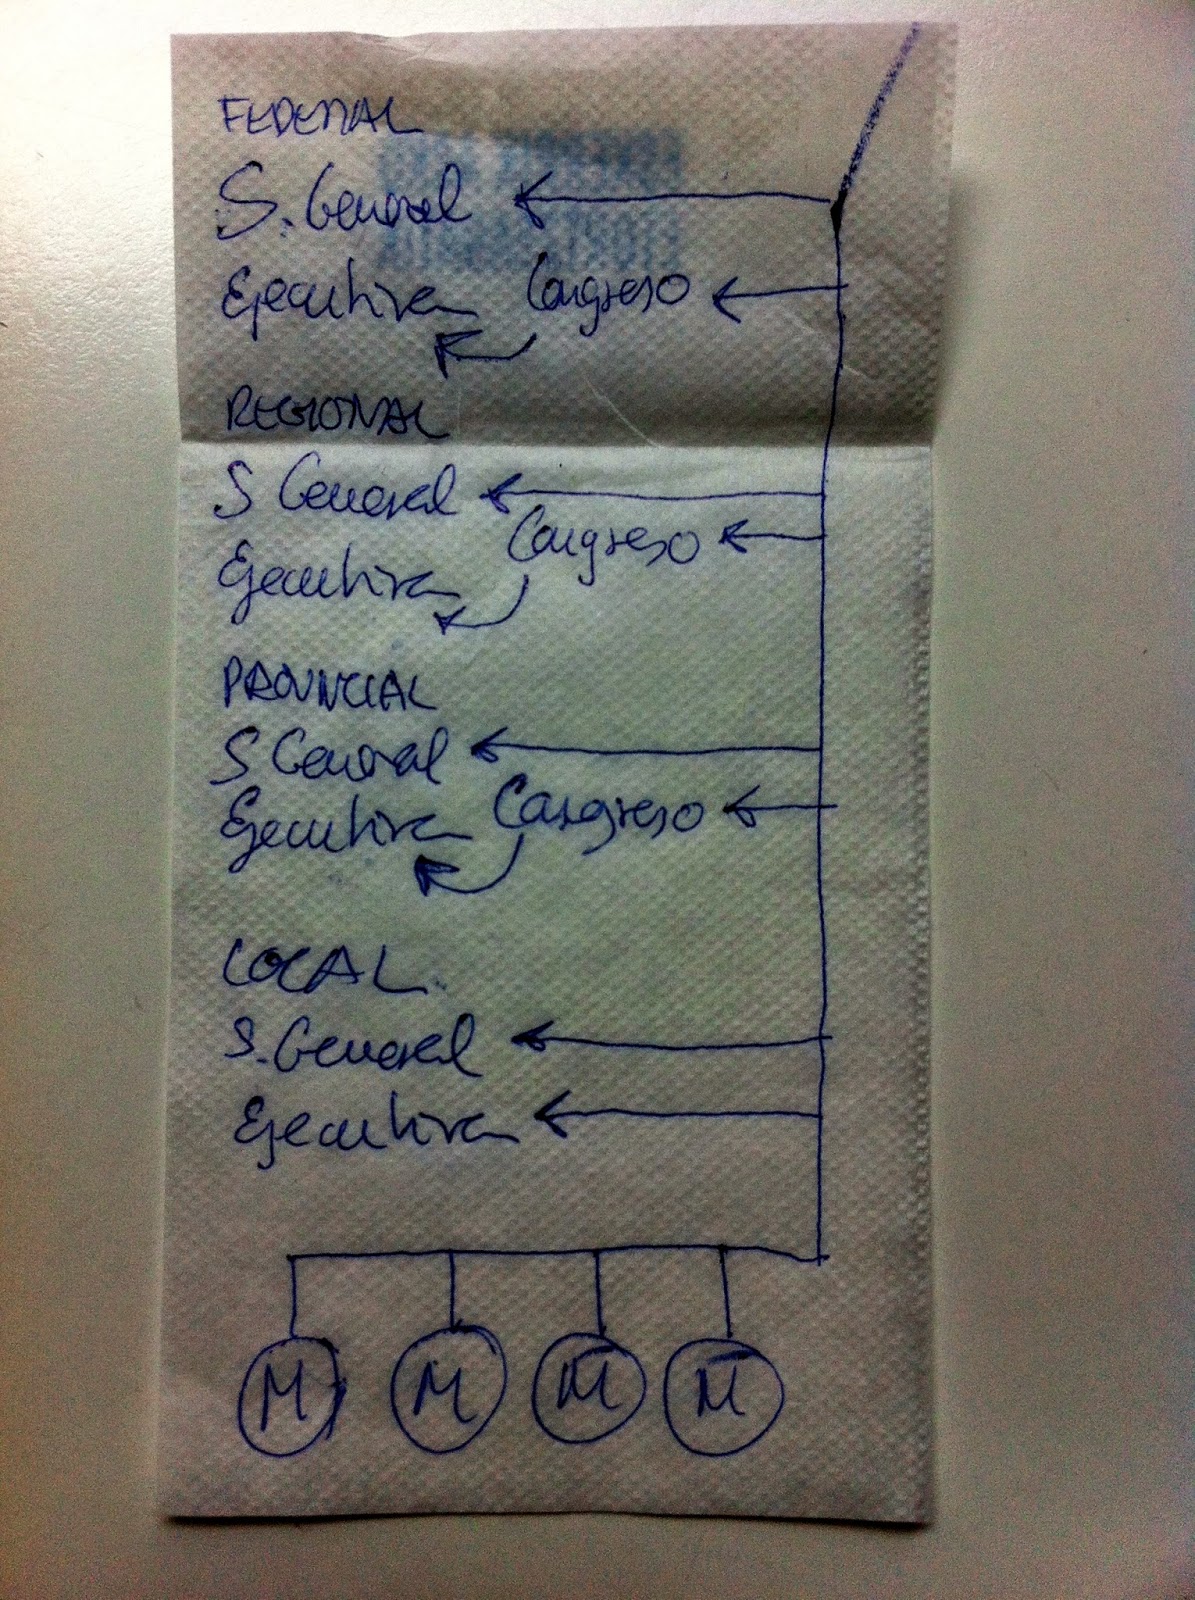 FEDERAL
S. General
Ejecutiva Congreso
REGIONAL
S General
Congreso
Ejecutiva
PROVINCIAL
S General
Ejecutiva Congreso
LOCAL
S. General
Ejecutiva
M M M M